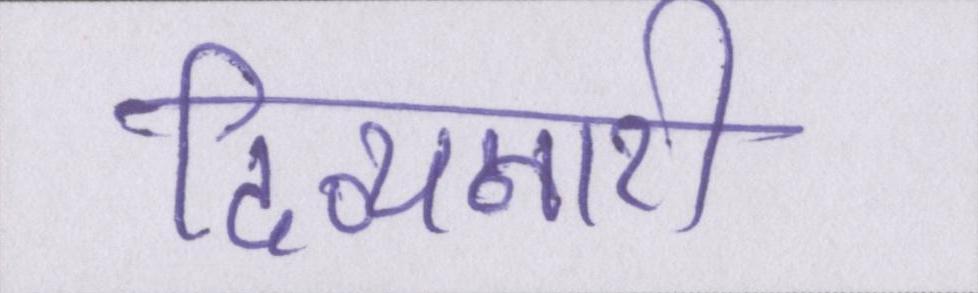 दिव्यनारी